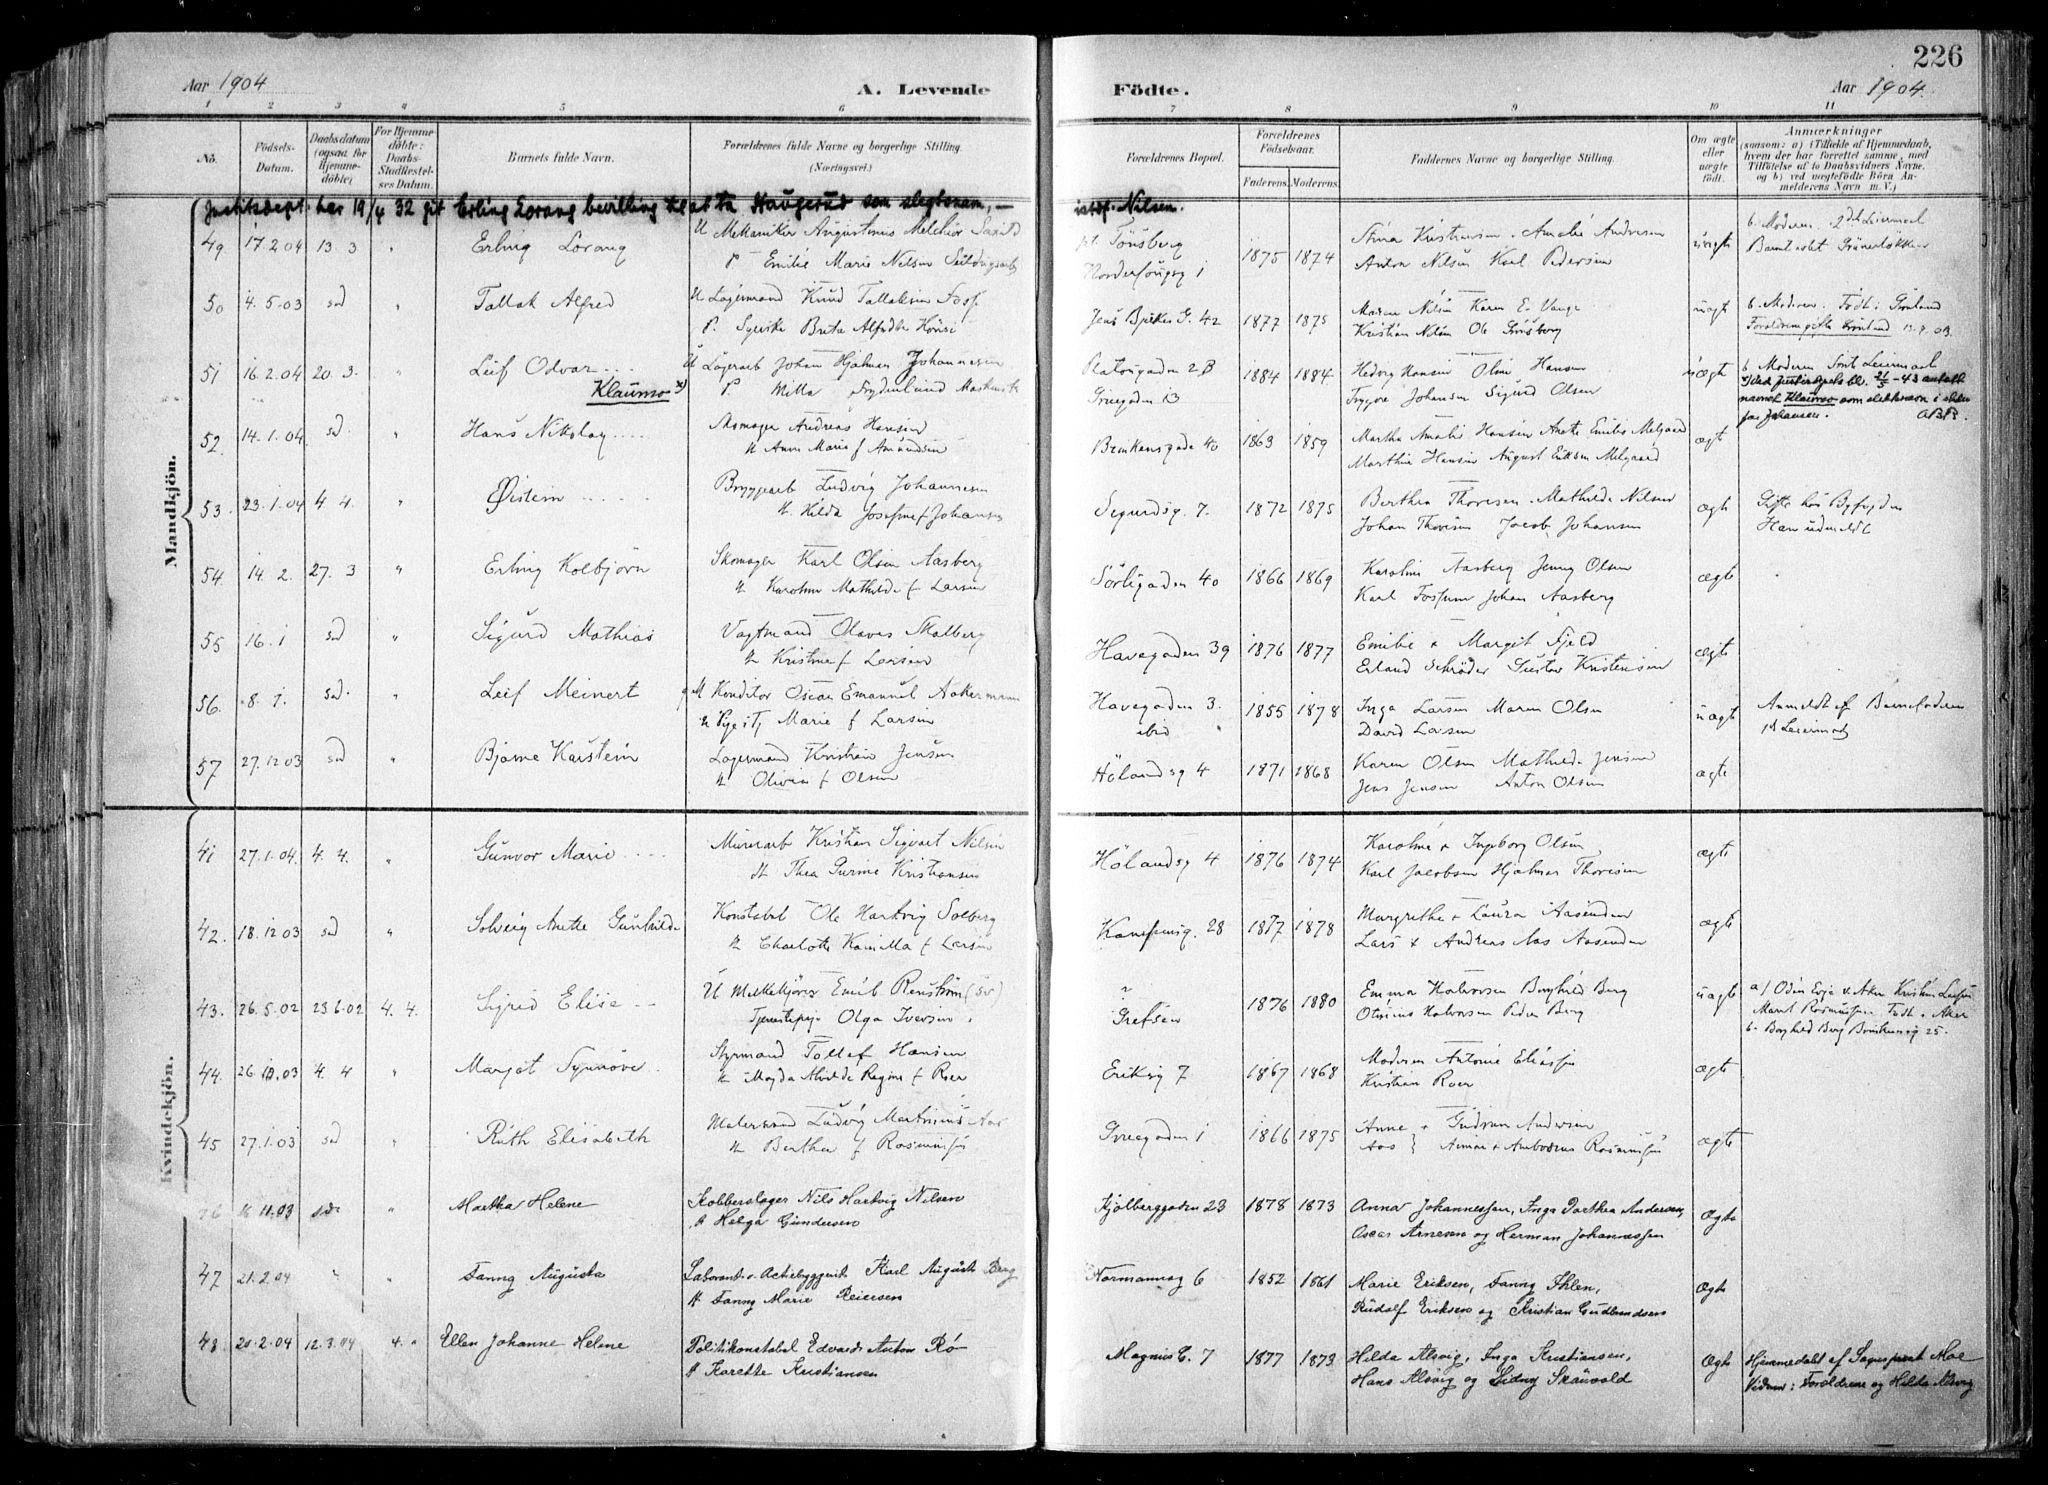 226
Aar 1904 A. Levende Födte. Aar 1904.
1 2 3 4 5 6 7 8 9 10 11
No. Födsels-Datum. Daabsdatum (ogsaa for Hjemmedöbte) For Hjemmedöbte: Daabs-Stadfæstelses Datum. Barnets fulde Navn. Forældrenes fulde Navne og borgerlige Stilling. (Næringsvei.) Forældrenes Bopæl. Forældrenes Födselsaar. Faderens. Moderens. Faddernes Navne og borgerlige Stilling. Om ægte eller uægte födt. Anmærkninger (saasom: a) i Tilfælde af Hjemmedaab, hvem der har forrettet samme, med Tilföielse af to Daabsvidners Navne, og b) ved uægtefödte Börn Anmelderens Navn m. V.)
Mandkjön.
Justitsdept. har 19/4 32 git Erling Lorang bevilling til at ta Haugerud som slegtsnam, – istdf. Nilsen.
49 17.2.04 13.3 " Erling Lorang U Mekaniker Augustinus Melchior pt. Tönsberg 1875 1874 Stina Kristensen. Amalie Andresen uægte b. Moderen. 2det Leiermaal
P. Emilie Marie Nelsen Anton Nilsen Karl Pedersen
50 4.5.03 sad " Tallak Alfred U Lagermand Knud Tallaksen Foss Jens Bjelkes G. 42 1877 1875 Maren Nilsen Karen E. uægte b. Moderen. Födt: Grönland
P. Syerske Berta Alfredte Kristian Nilsen Ole
51 16.2.04 20.3. " Leif Odvar... U Lagerarb Johan Hjalmar Johannesen Platougaden 2B 1884 1884 Hedvig Hansen Oline Hansen uægte b Moderen 1ste Leiermaal
Klaumo x) P. Milla Frydenlund Gruegaden 13 Trygve Johansen Sigurd Olsen
navnet Klaumo som slektsnavn i stden
for Johansen.
52. 14.1.04 sd. " Hans Nikolay.... Skomager Andreas Hansen Brinkensgade 40 1863 1859 Martha Amalie Hansen Anette Emilie Melgaard ægte
H Anne Marie f Amundsen Marthin Hansen August Eriksen Melgaard
53. 23.1.04 4 4. " Øistein Bryggerarb Ludvig Johannesen Sigurdsg. 7. 1872 1875 Berthea Thoresen. Mathilde Nilsen ægte Gifte hos Byfogden
H. Hilda Josefine f Johansen Johan Thoresen Jacob Johansen Han udmeldt
54 14.2. 27.3 " Erling Kolbjörn Skomager Karl Olsen Aasberg Sörligaden 40 1866 1869 Karoline Aasberg Jenny Olsen ægte
H Karoline Mathilde f Larsen Karl Fossum Johan Aasberg
55 16.1 sad " Sigurd Mathias Vagtmand Olaves Skalberg Havegaden 39 1876 1877 Emilie & Margit Fjeld ægte
H Kristine f Larsen Erland Schröder Gustav Kristensen
56. 8.1. sad. " Leif Meinert gM Konditor Oscar Emanuel Aakermann Havegaden 3. 1855 1878 Inga Larsen Maren Olsen uægte Anmeldt af Barnefaderen
Marie f Larsen ibid David Larsen 1st Leiermaal
57 27.12 03 sad " Bjarne Karstein Lagermand Kristian Jensen Hölandsg 4 1871 1868 Karen Olsen Mathilde Jensen ægte
H Olivia f Olsen Jens Jensen Anton Olsen
Kvindekjön.
41 27.1.04. 4.4. " Gunvor Marie.... Murerarb Kristian Sigvart Nilsen Hölandsg 4 1876 1874 Karoline & Ingeborg Olsen ægte
H Thea Kristiansen Karl Jacobsen Hjalmar Thoresen
42. 18.12 03 sad " Solveig Anette Gunhilde Konstabel Ole Hartvig Solberg Kampensg. 28 1877 1878 Margrethe & Laura Aasenden ægte
H Charlotte Kamilla f Larsen Lars & Andreas Aas Aasenden
43. 26.5.02 23 6.02 4.4. Sigrid Elise U Mælkekjörer Emil Renström (Sv) ? 1876 1880 Emma Halvorsen Borghild Berg uægte
Tjenestepige Olga Iversen. Grefsen Otinius Halvorsen Peder Berg b. Borghild Berg Brinkensg 25.
44. 26.10.03 4.4 " Margot Synnöve. Styrmand Tollef Hansen Eriksg 7 1867 1868 Moderen Antonie Eliassen ægte
H Magda Alvilde Regine f Roer Kristian Roer
45 27.1.03 sad " Ruth Elisabeth Malersvend Ludvig Martinius Aas Gruegaden 1 1866 1875 Anne & Gudrun Andersen ægte
H Berthea f Rasmussen Aas } Aimar & Ambrosius Rasmussen
46 11.03 sad " Martha Helene Kobberslager Nils Hartvig Nilsen Kjölberggaden 23 1878 1873 Anna Johannessen, Inga Dorthea Andersen, Ægte
H Helga Gundersen Oscar Arnesen og Herman Johannessen
47 21.2.04 " " Fanny Augusta Laborant v. Actiebryggeriet Karl August Berg Normannsg 6 1852 1861 Marie Eriksen, Fanny Ihlen, Ægte
H Fanny Marie Reiersen Rudolf Eriksen og Kristian Gudbrandsen
48. 20.2.04 12.3.04 4. " Ellen Johanne Helene Politikonstabel Edvard Anton Rö Magnus G. 7 1877 1873 Hilda Alsvig, Inga Kristiansen, Ægte Hjemmedöbt af Sognepræst Moe
H Karette Kristiansen Hans Alsvig og Sidney Skauvold Vidner: Forældrene og Hilda Alsvig